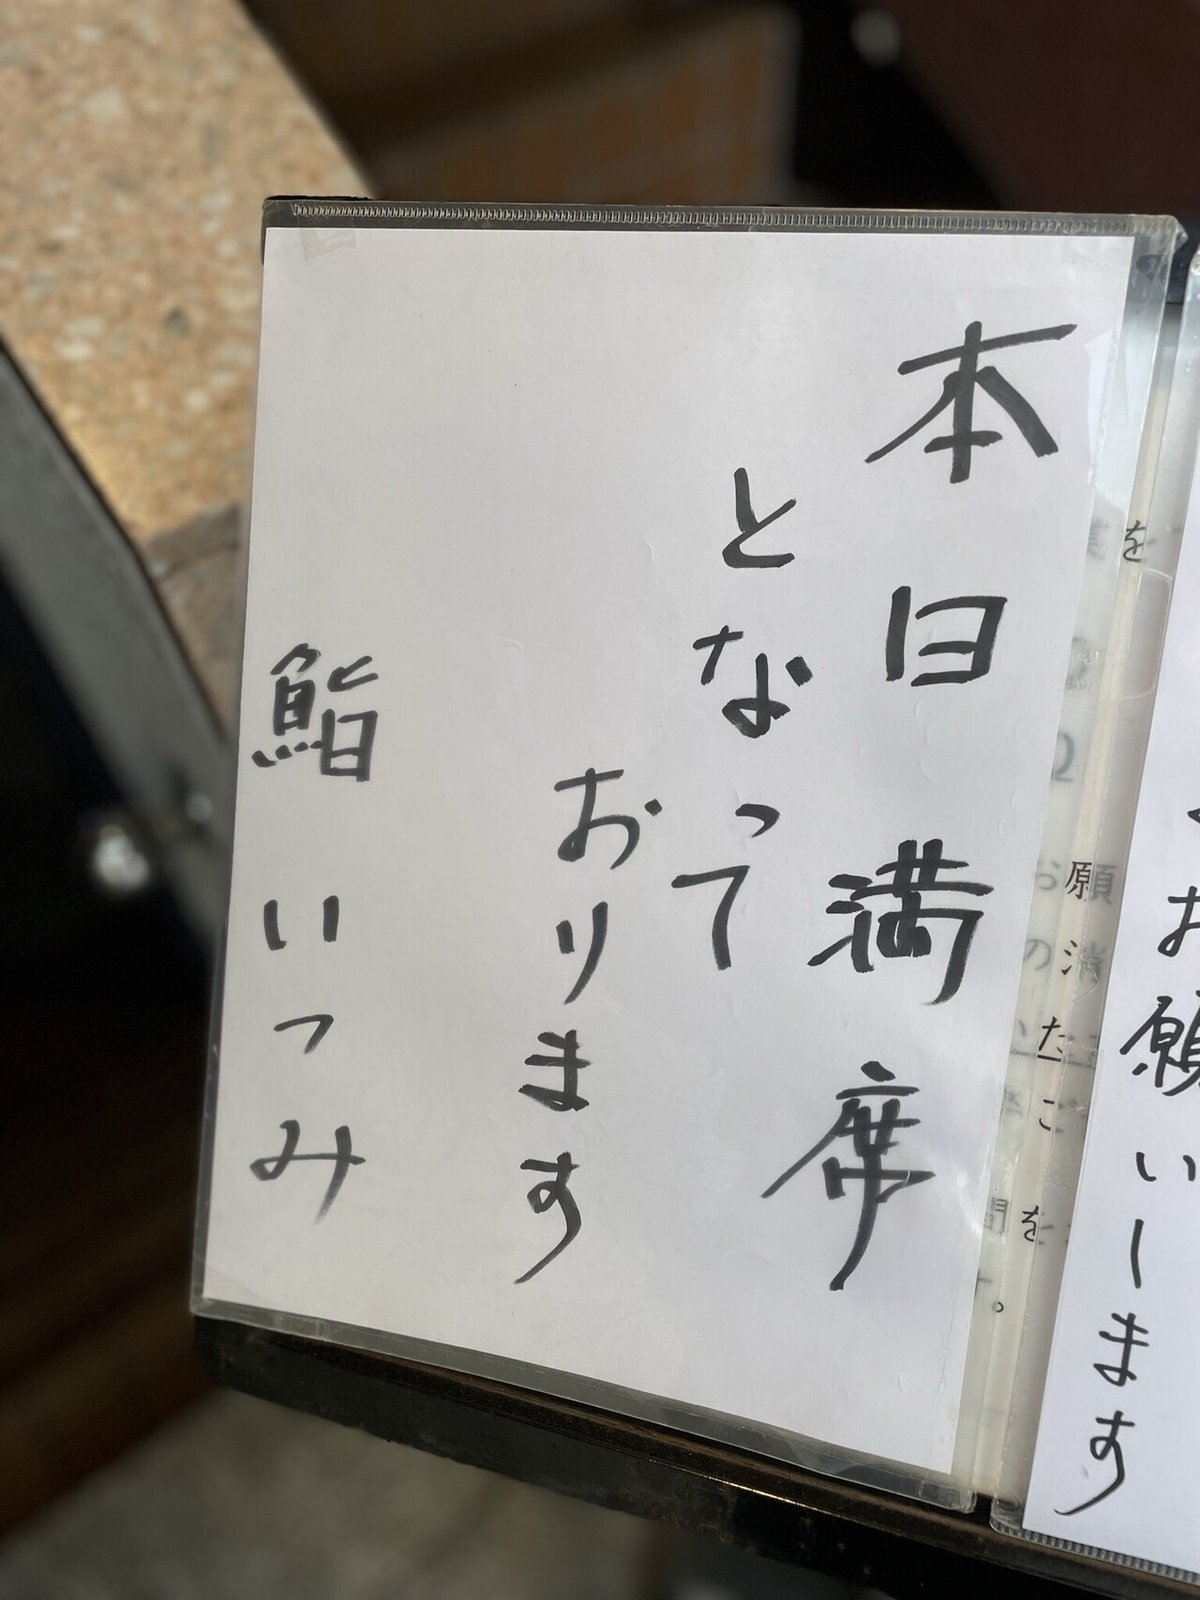 お願いします
本日満席
となって
おります
鮨 いつみ